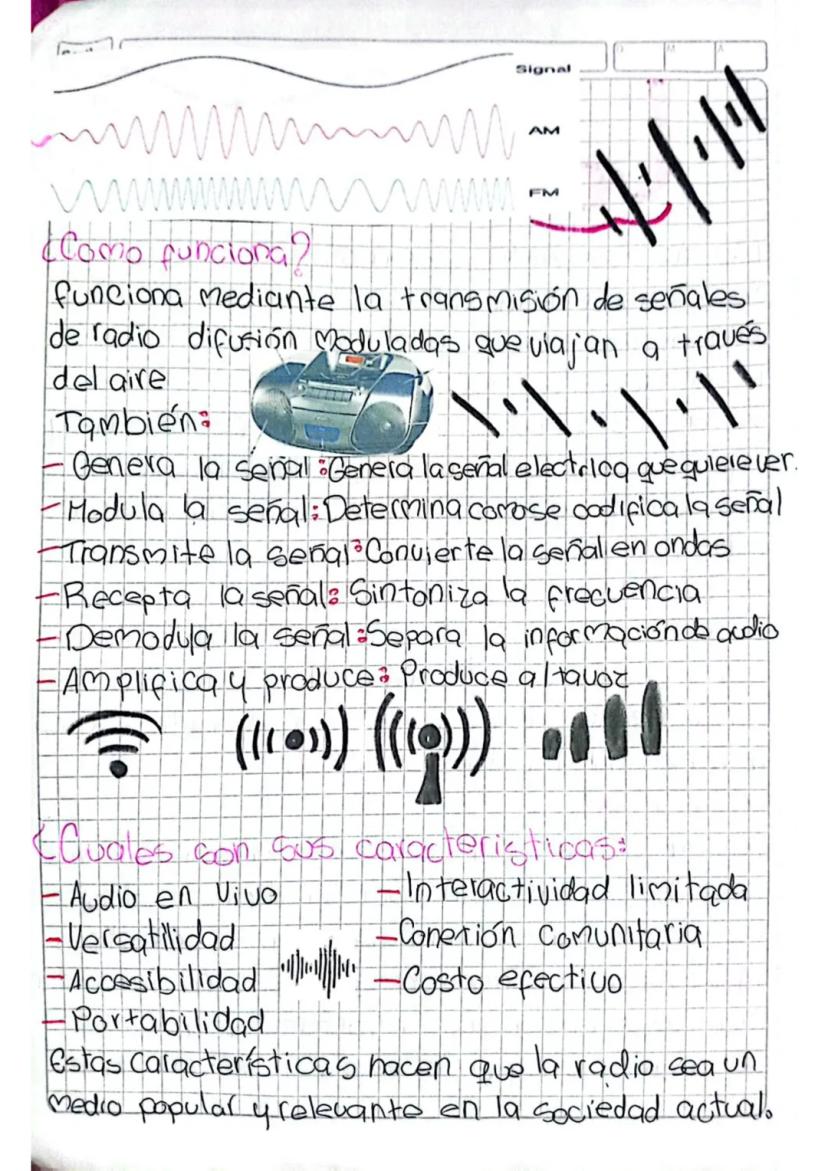 Signal
AM
FM
¿Como funciona?
funciona mediante la transmisión de señales
de radio difusión Moduladas que viajan a través
del aire
También:
- Genera la señal: Genera la señal electrica que quiere ver.
- Modula la señal: Determina como se codifica la señal
- Transmite la señal: Convierte la señal en ondas
- Recepta la señal: Sintoniza la frecuencia
- Demodula la señal: Separa la información de audio
- Amplifica y produce: Produce altavoz
¿Cuales son sus caracteristicas:
- Audio en vivo
- Versatilidad
- Accesibilidad
- Portabilidad
- Interactividad limitada
- Conexión Comunitaria
- Costo efectivo
Estas características hacen que la radio sea un
medio popular y relevante en la sociedad actual.